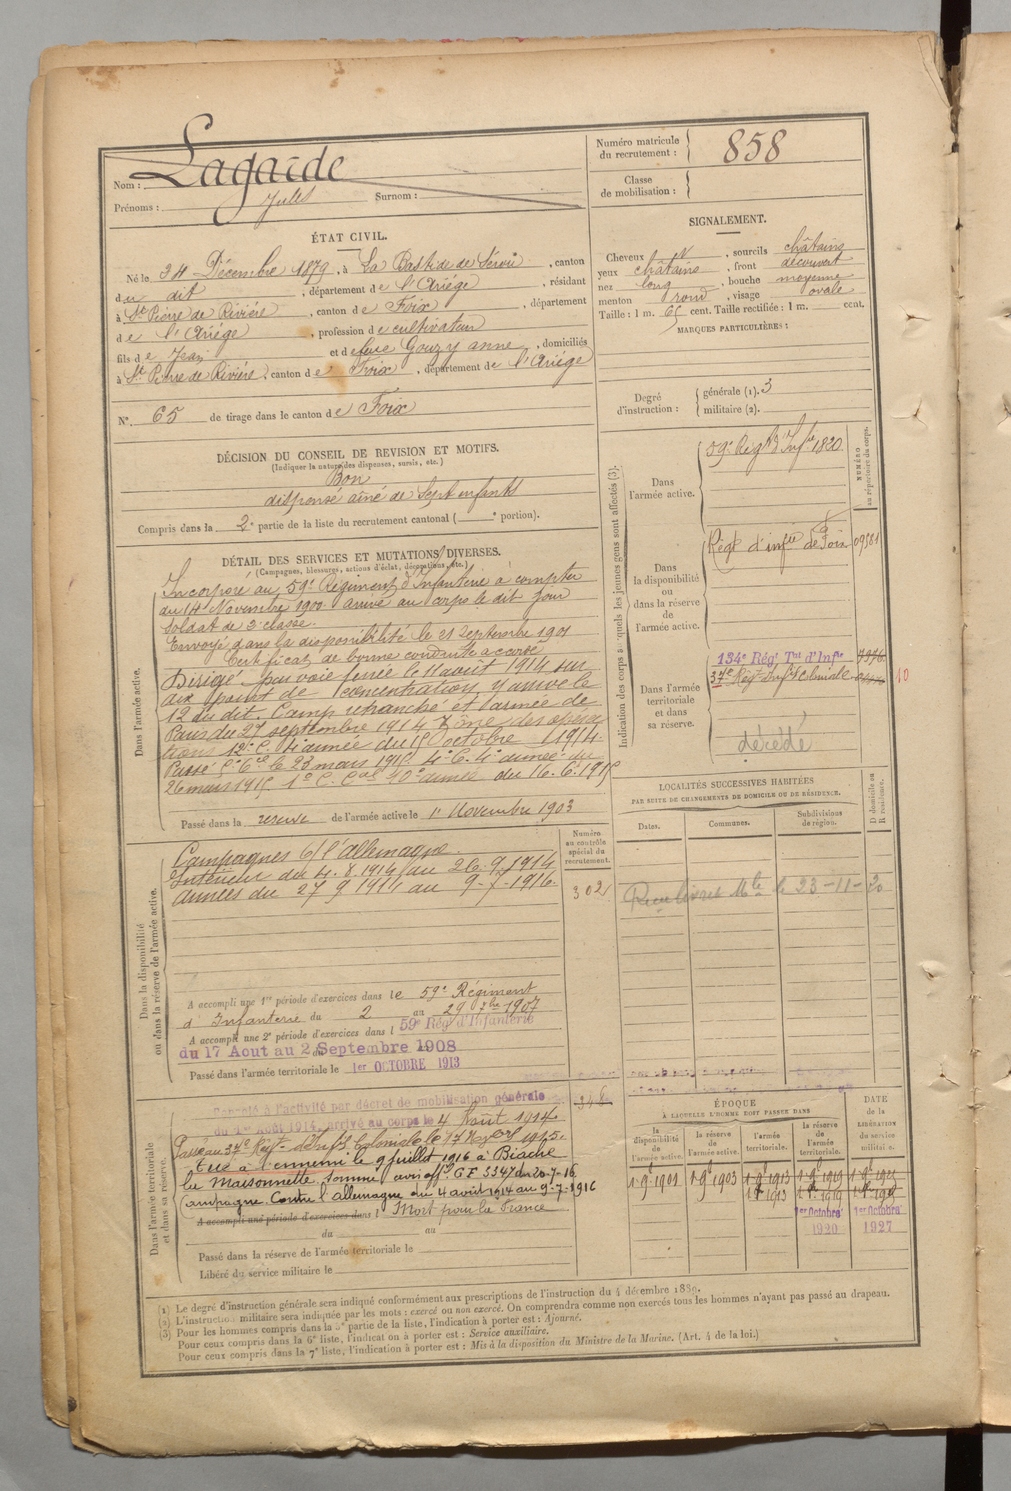 Lagarde
Nom :
Prénoms : Jules Surnom :
Numéro matricule du recrutement : 858
Classe de mobilisation :
ÉTAT CIVIL.
Né le 24 Décembre 1879, à La Bastide de Sérou, canton
du dit, département de l'Ariége, résidant
à St Pierre de Rivière, canton de Foix, département
de l'Ariége, profession de cultivateur
fils de Jean et de feue Gouzy anne, domiciliés
à St Pierre de Rivière, canton de Foix, département de l'Ariége
N° 65 de tirage dans le canton de Foix
SIGNALEMENT.
Cheveux N, sourcils châtains
yeux châtains, front découvert
nez long, bouche moyenne
menton rond, visage ovale
Taille : 1 m. 65 cent. Taille rectifiée : 1 m. cent.
MARQUES PARTICULIÈRES :
Degré d'instruction : générale (1). 3
militaire (2).
DÉCISION DU CONSEIL DE REVISION ET MOTIFS.
(Indiquer la nature des dispenses, sursis, etc.)
Bon
dispensé aîné de sept enfants
Compris dans la 2e partie de la liste du recrutement cantonal ( e portion).
DÉTAIL DES SERVICES ET MUTATIONS DIVERSES.
(Campagnes, blessures, actions d'éclat, décorations, etc.)
Dans l'armée active.
Incorporé au 59e Régiment d'Infanterie à compter
du 14 Novembre 1900 arrivé au corps le dit jour
soldat de 2e classe.
Envoyé dans la disponibilité le 21 Septembre 1901
Certificat de bonne conduite accordé
Dirigé par voie ferrée le 11 août 1914 sur
aix point de concentration y arrive le
12 du dit. Camp retranché et armée de
Paris du 27 septembre 1914 Zône des opéra
tions 12e C. 4e armée du 15 Octobre 1914.
Passé 5e 6e le 23 mars 1915 4e C. 4e armée du
26 mars 1915 1er C. Cal 10e armée du 16.6.1915
Passé dans la réserve de l'armée active le 1er Novembre 1903
Dans la disponibilité ou dans la réserve de l'armée active.
Numéro au contrôle spécial du recrutement.
Campagnes c/ l'allemagne.
Intérieur du 4.8.1914 au 26.9.1914
années du 27 9 1914 au 9-7-1916.
302
A accompli une 1re période d'exercices dans le 59e Régiment
d'Infanterie du 2 au 29 7bre 1907
A accompli une 2e période d'exercices dans l 59e Rég d'Infanterie
du 17 Aout au 2 Septembre 1908
Passé dans l'armée territoriale le 1er OCTOBRE 1913
Dans l'armée territoriale et dans sa réserve.
Rappelé à l'activité par décret de mobilisation générale
du 1er Août 1914, arrivé au corps le 4 Août 1914.
348
Passé au 37e Régt d'Infie Coloniale le 17 1915.
tué à l'ennemi le 9 juillet 1916 à Biache
la Maisonnette, somme avis offel G F 3347 du 20-7-16
Campagne Contre l'allemagne du 4 août 1914 au 9-7-1916
A accompli une période d'exercices dans l Mort pour la France
du au
Passé dans la réserve de l'armée territoriale le
Libéré du service militaire le
Indication des corps auxquels les jeunes gens sont affectés (3).
NUMÉRO au répertoire du corps.
Dans l'armée active.
59e Régt d'Infie 1820
Dans la disponibilité ou dans la réserve de l'armée active.
Régt d'infie de Foix 09581
Dans l'armée territoriale et dans sa réserve.
134e Régt Tal d'Infie 7376
37e Régt Infie Coloniale
10
décédé
LOCALITÉS SUCCESSIVES HABITÉES
PAR SUITE DE CHANGEMENTS DE DOMICILE OU DE RÉSIDENCE.
Dates. Communes. Subdivisions de région. D domicile ou R résidence.
le 23-11-20
ÉPOQUE
À LAQUELLE L'HOMME DOIT PASSER DANS
DATE de la LIBÉRATION du service militaire.
la disponibilité de l'armée active.
la réserve de l'armée active.
l'armée territoriale.
la réserve de l'armée territoriale.
1 9e 1901 1 9e 1903 1 9e 1913 1 9e 1919 1 9e 1925
1er Octobre 1920 1er Octobre 1927
(1) Le degré d'instruction générale sera indiqué conformément aux prescriptions de l'instruction du 4 décembre 1889.
(2) L'instruction militaire sera indiquée par les mots : exercé ou non exercé. On comprendra comme non exercés tous les hommes n'ayant pas passé au drapeau.
(3) Pour les hommes compris dans la 5e partie de la liste, l'indication à porter est : Ajourné.
Pour ceux compris dans la 6e liste, l'indication à porter est : Service auxiliaire.
Pour ceux compris dans la 7e liste, l'indication à porter est : Mis à la disposition du Ministre de la Marine. (Art. 4 de la loi.)